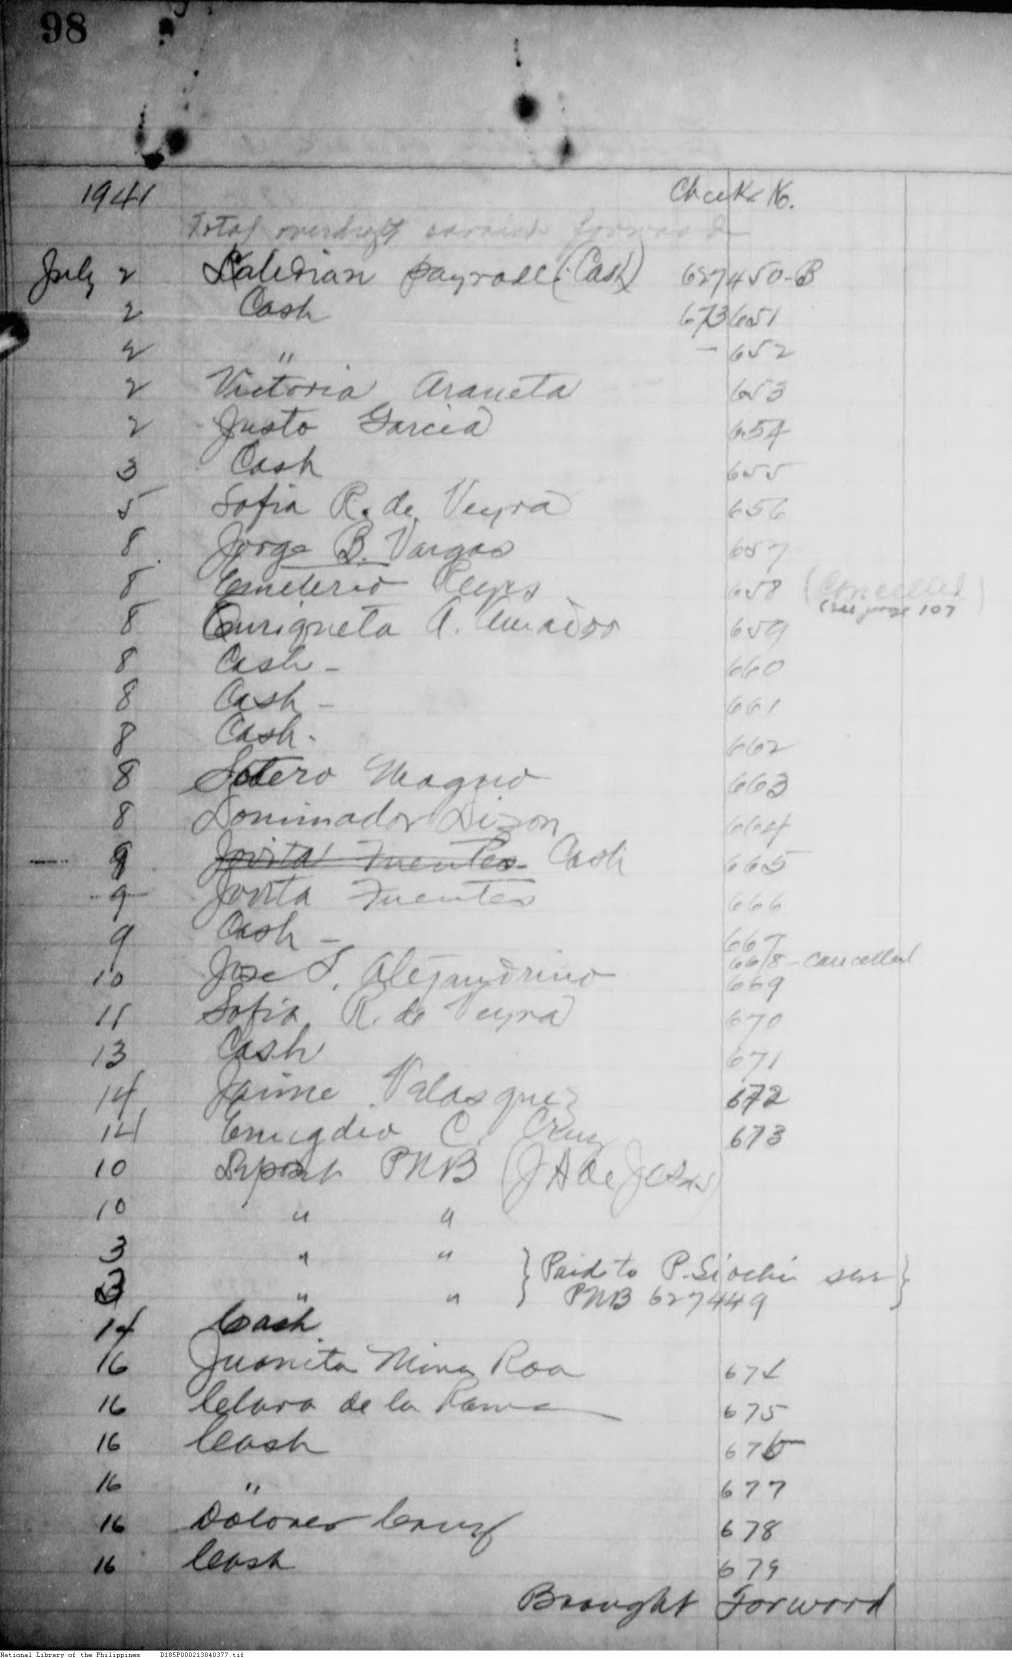 98
1941 Check No.
Total overdraft carried forward
July 2 payroll (Cash) 627450-B
2 Cash 673651
2 " - 652
2 Victoria Araneta 653
2 Justo Garcia 654
3 Cash 655
5 Sofia R. de Veyra 656
8 Jorge B. Vargas 657
8 Emeterio Reyes 658 (Concelled)
(See page 107
8 Enriqueta A. Amador 659
8 Cash - 660
8 Cash - 661
8 Cash - 662
8 Sotero Magno 663
8 Dominador Dizon 664
9 Jovita Fuentes Cash 665
9 Jovita Fuentes 666
9 Cash - 667
668 - cancelled
10 Jose S. Alejandrino 669
11 Sofia R. de Veyra 670
13 Cash 671
14 Jaime Velasquez 672
14 Emigdio C. Cruz 673
10 Deposit PNB (J A de Jesus)
10 " "
3 " " } Paid to P. Siochi
3 " " } PNB 627449
14 Cash
16 Juanita Ming Roa 674
16 Clara de la Rama 675
16 Cash 676
16 " 677
16 Dolores Cruz 678
16 Cash 679
Brought Forword
National Library of the Philippines D185P000213840377.tif